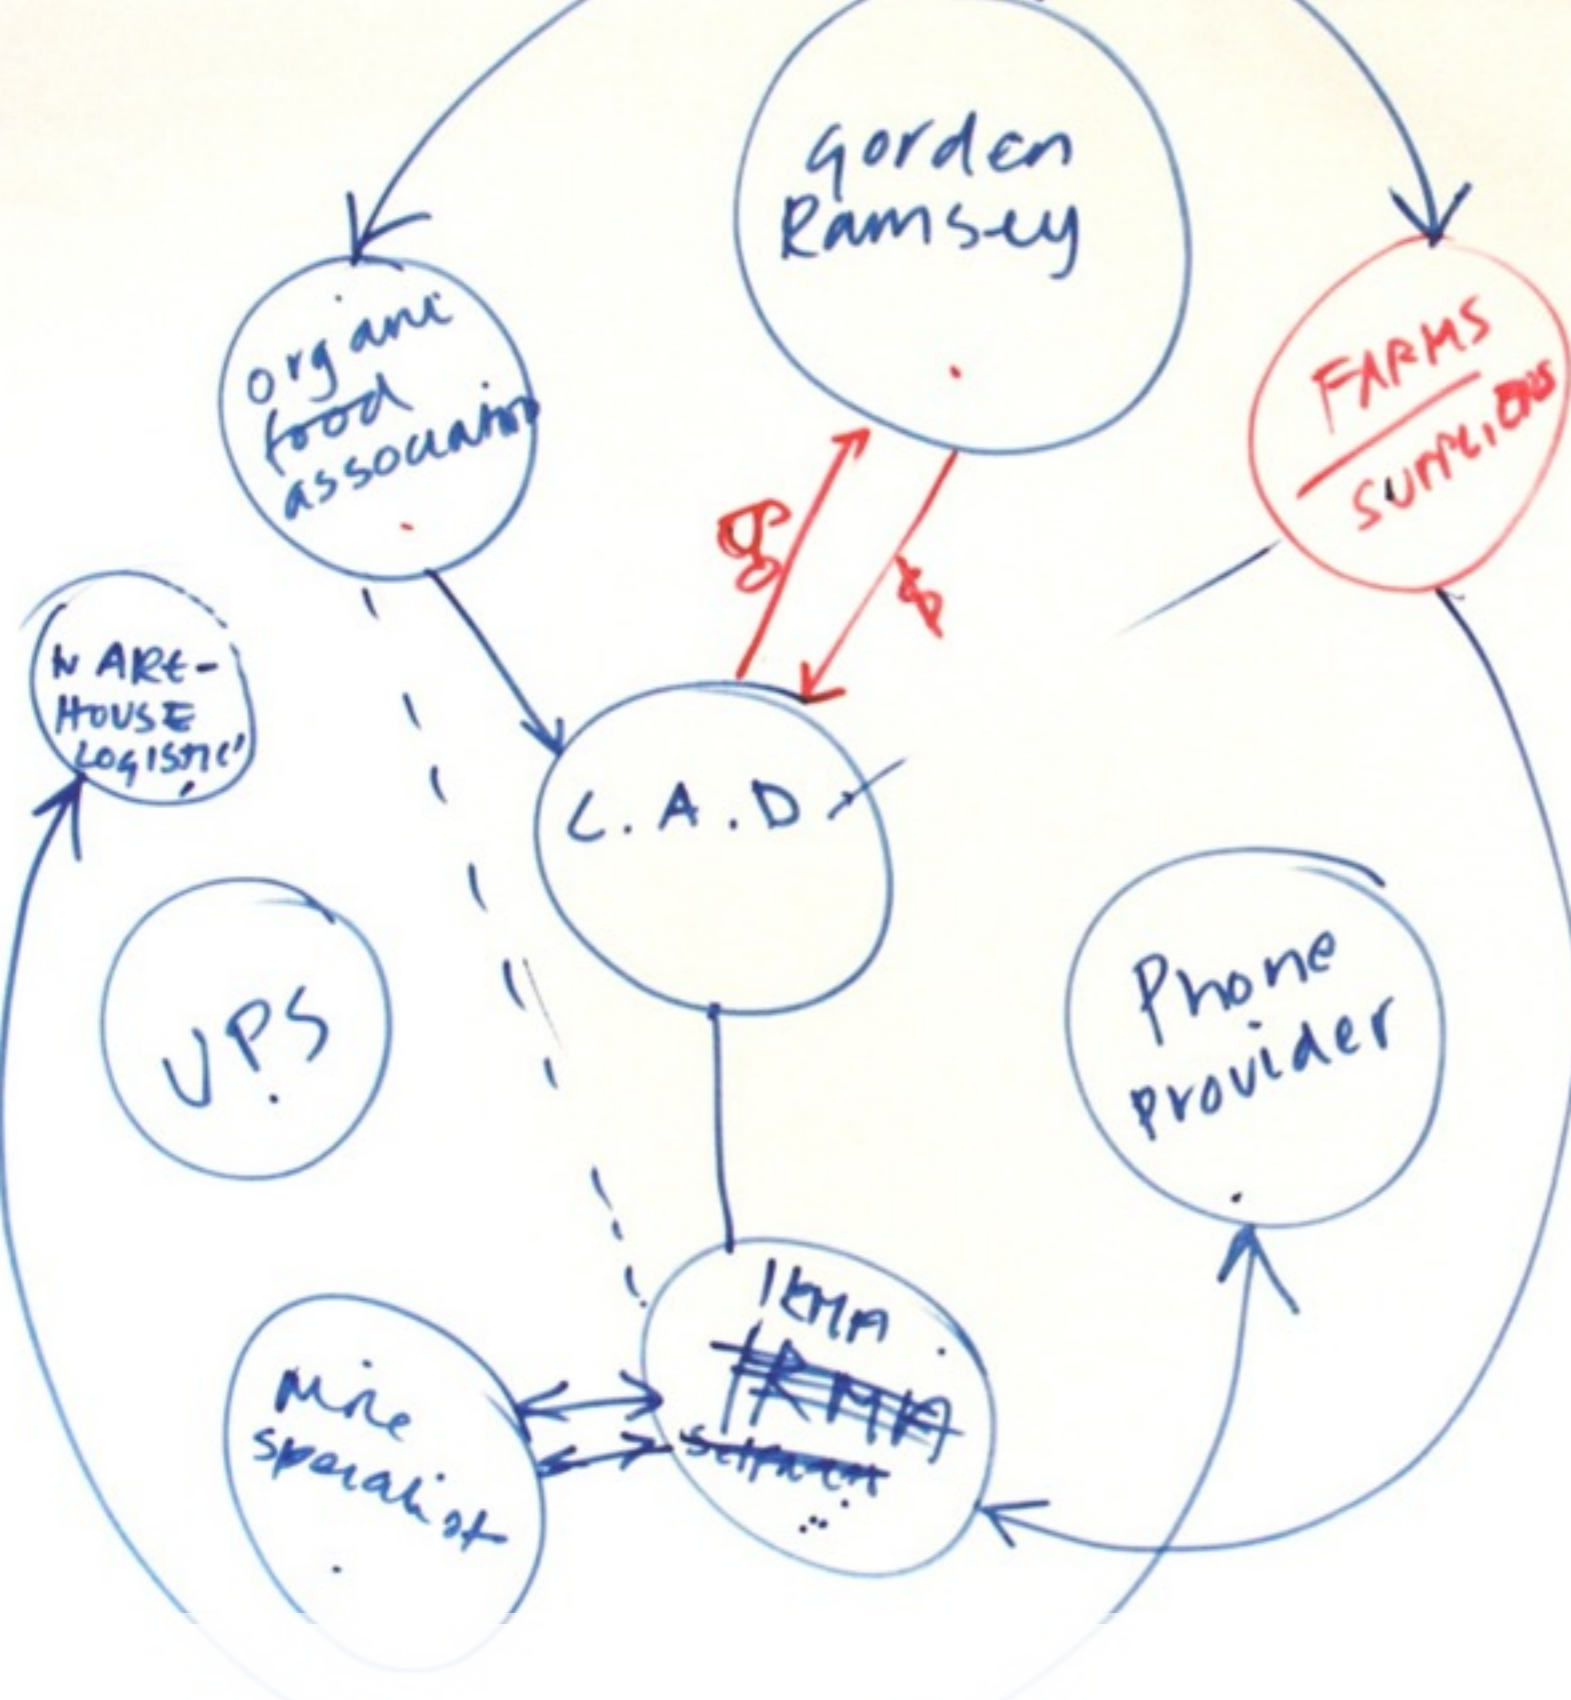 Gorden
Ramsey
organic
food
association
FARMS
SUPPLIERS
$
WARE-
HOUSE
LOGISTIC
L.A.D.
UPS
Phone
provider
IKMA
IKMA
specialist